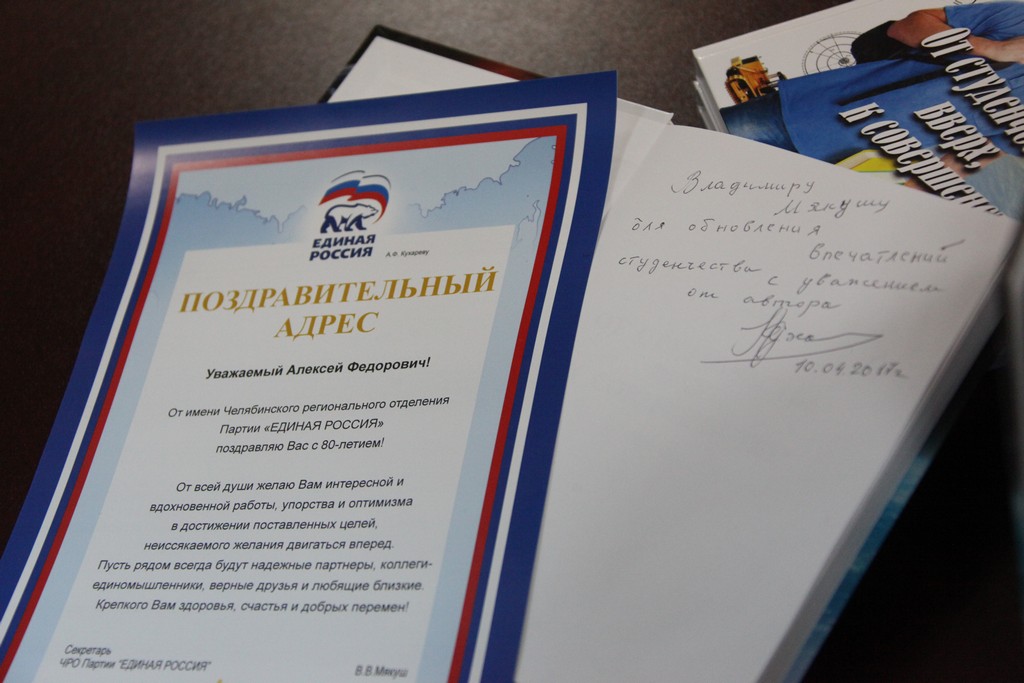 ЕДИНАЯ
РОССИЯ
А.Ф. Кухареву
ПОЗДРАВИТЕЛЬНЫЙ
АДРЕС
Уважаемый Алексей Федорович!
От имени Челябинского регионального отделения
Партии «ЕДИНАЯ РОССИЯ»
поздравляю Вас с 80-летием!
От всей души желаю Вам интересной и
вдохновенной работы, упорства и оптимизма
в достижении поставленных целей,
неиссякаемого желания двигаться вперед.
Пусть рядом всегда будут надежные партнеры, коллеги-
единомышленники, верные друзья и любящие близкие.
Крепкого Вам здоровья, счастья и добрых перемен!
Секретарь
ЧРО Партии "ЕДИНАЯ РОССИЯ"
В.В.Мякуш
Владимиру
Мякушу
для обновления
впечатлений
студенчества с уважением
от автора
10.04.2017г
ОТ
ВВЕРХ,
К